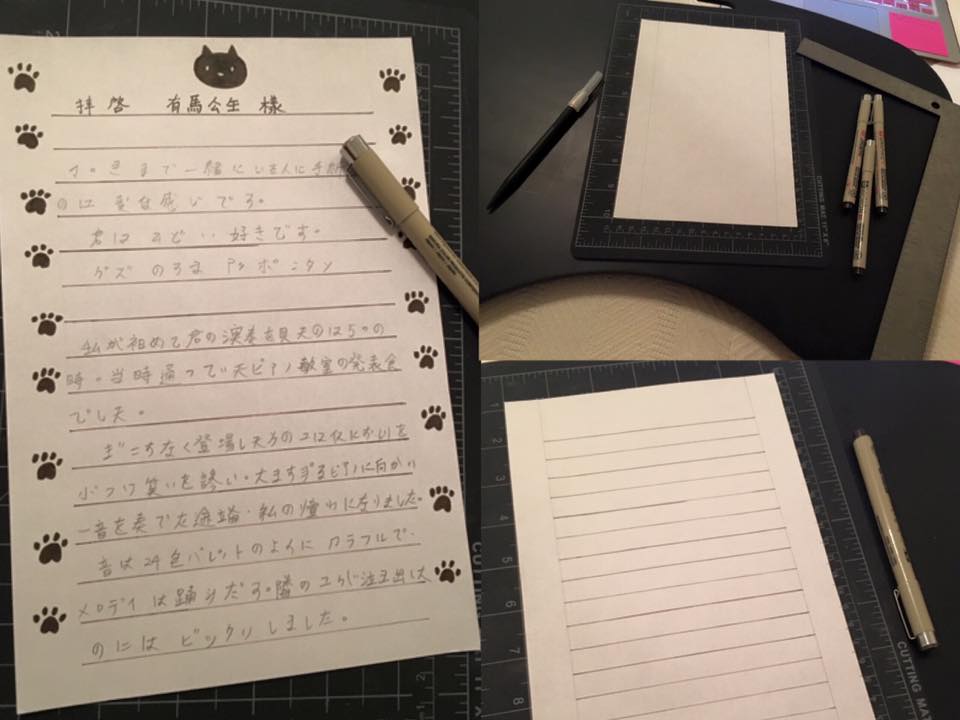 拝啓 有馬公生 様
さっきまで一緒にいた人に手紙
のは変な感じです。
君は ひどい 好きです。
グズ のろま アンポンタン
私が初めて君の演奏を見たのは5つの
時。当時通っていたピアノ教室の発表会
でした。
ぎこちなく登場したその
ぶつけ笑いを誘い。大きすぎるピアノに向かい
一音を奏でた途端・私の憧れになりました。
音は24色パレットのように カラフルで・
メロディは踊りだす。隣の
のにはビックリしました。
CUTTING MAT
CUTTING MAT